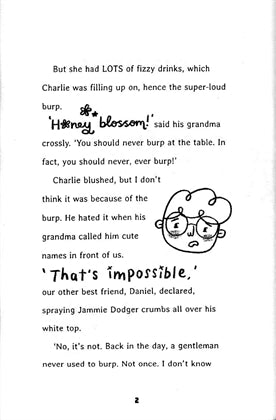 But she had LOTS of fizzy drinks, which
Charlie was filling up on, hence the super-loud
burp.
'Honey blossom!' said his grandma
crossly. 'You should never burp at the table. In
fact, you should never, ever burp!'
Charlie blushed, but I don't
think it was because of the
burp. He hated it when his
grandma called him cute
names in front of us.
'That's impossible,'
our other best friend, Daniel, declared,
spraying Jammie Dodger crumbs all over his
white top.
'No, it's not. Back in the day, a gentleman
never used to burp. Not once. I don't know
2